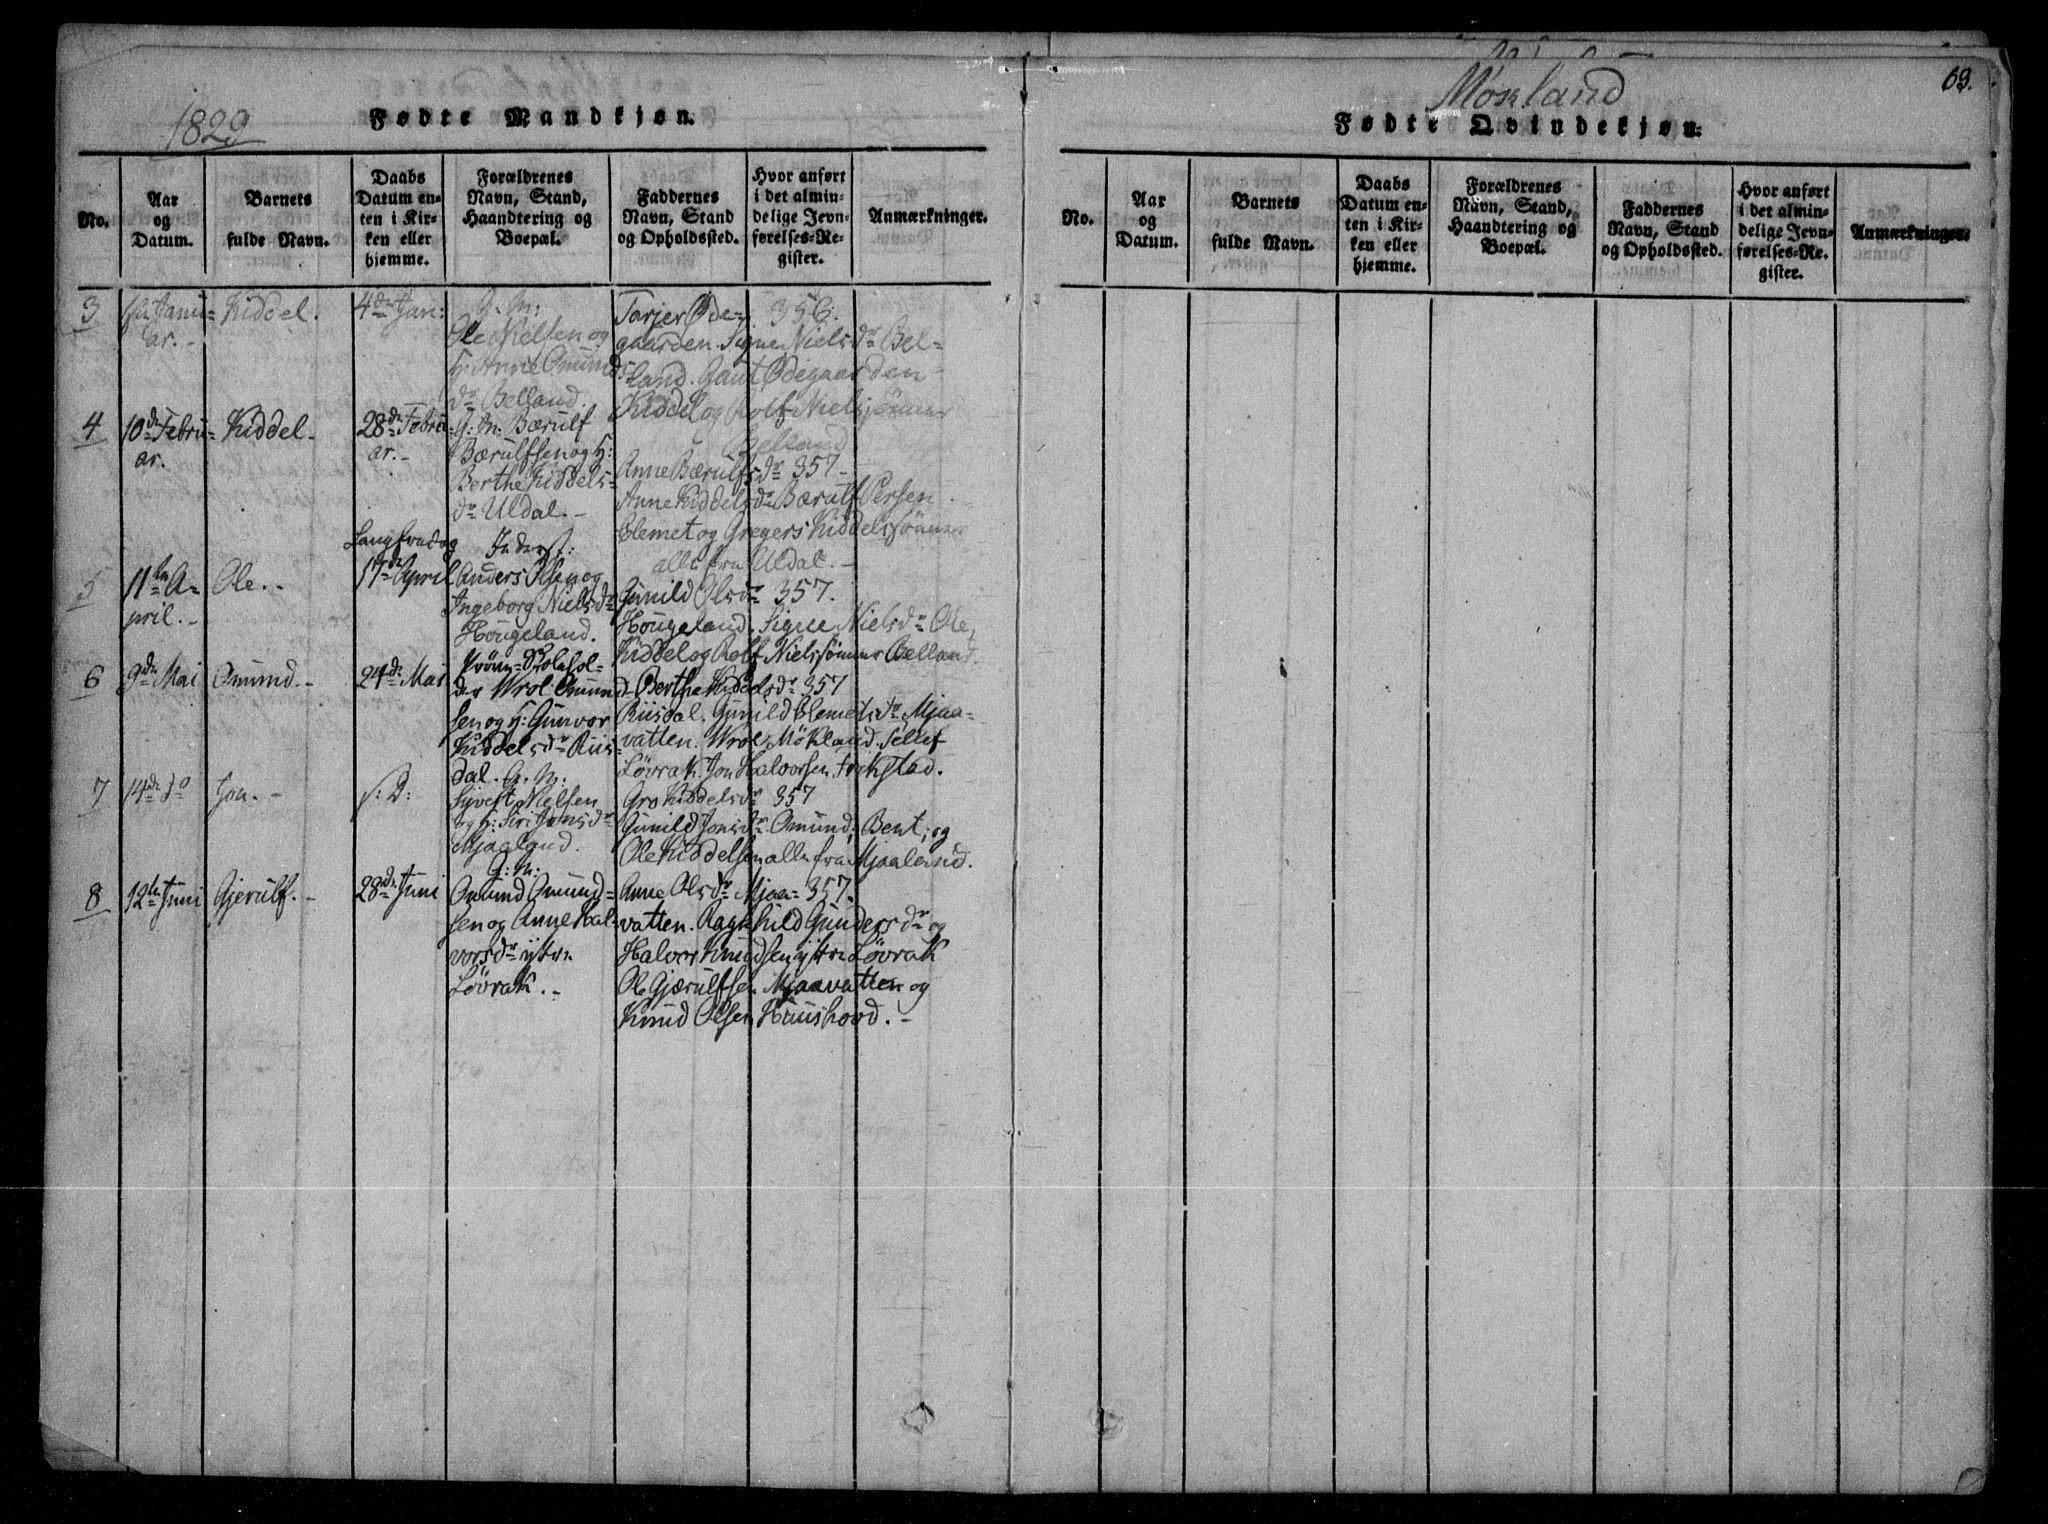 1829
Fødte Mandkjøn.
No.
Aar
og
Datum.
Barnets
fulde Navn.
Daabs
Datum en-
ten i Kir-
ken eller
hjemme.
Forældrenes
Navn, Stand,
Haandtering og
Boepæl.
Faddernes
Navn, Stand
og Opholdssted.
Hvor anført
i det almin-
delige Jevn-
førelses-Re-
gister.
Anmærkninger.
3
Janu-
ar. -
Kiddel.
4de Jan:
G. M:
Ole Nielsen og
H: Anne Omunds
dr Belland.
Tarjer Øde-
gaarden. Signe Nielsdr Bel-
land. Gaut Ødegaarden
Kiddel og Rolf Nielssønner
Belland
356.
4
10de Febru-
ar.
Kiddel -
28de Febru-
ar. -
G. M: Bærulf
Bærulfsen og H:
Berthe Kiddels-
dr Uldal. -
Anne Bærulfsdr 357 -
Anne Kiddelsdr Bærulf Persen
Clemet og Gregers Kiddelssønner
alle fra Uldal. -
5
11te A-
pril. -
Ole. -
Langfredag
17de April
Inderst:
Anders Olsen og
Ingeborg Nielsdr
Hougeland.
Gunild Olsdr 357.
Hougeland. Signe Nielsdr Ole,
Kiddel og Rolf Nielssønner Belland.
6
9de Mai
Omund. -
24de Mai
Skolehol-
der Wrol Omund-
sen og H: Gunvor
Kiddelsdr Riis-
dal.
Berthe Kiddelsdr 357
Riisdal. Gunild Clemetsdr Mjaa-
vatten. Wrol Mökland. Sellef
Lövrak. Jon Halvorsen Frikstad.
7
14de do
Jon. -
s: D:
G. M:
Sivert Nielsen
og H: Siri Jonsdr
Mjaaland.
Gro Kiddelsdr 357
Gunild Jonsdr Omund, Bent, og
Ole Kiddelsen alle fra Mjaaland.
8
12te Juni
Gjerulf. -
28de Juni
G: M:
Omund Omund-
sen og Anne Hal-
vorsdr ytre
Lövrak. -
Anne Olsdr Mjaa- 357.
vatten. Ragnhild Gundersdr og
Halvor Knudsen ytre Lövrak
Ole Gjærulfsen Mjaavatten og
Knud Olsen Huushovd. -
Møsland
69.
Fødte Qvindekjøn.
No.
Aar
og
Datum.
Barnets
fulde Navn.
Daabs
Datum en-
ten i Kir-
ken eller
hjemme.
Forældrenes
Navn, Stand,
Haandtering og
Boepæl.
Faddernes
Navn, Stand
og Opholdssted.
Hvor anført
i det almin-
delige Jevn-
førelses-Re-
gister.
Anmærkninger.